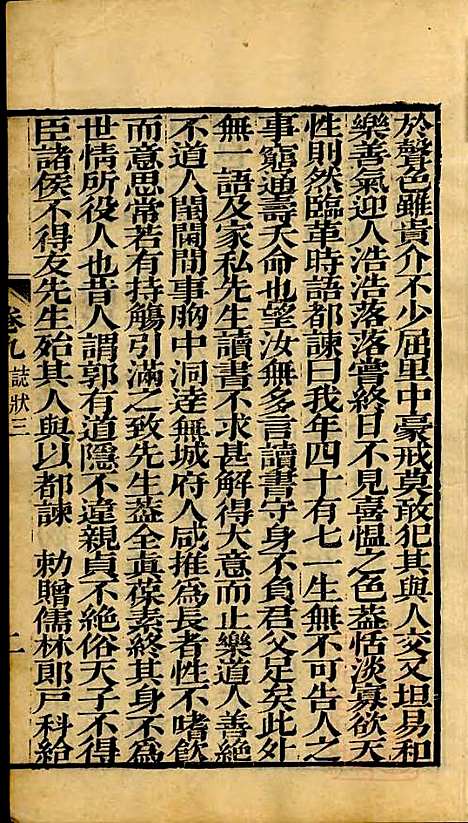 於聲色雖貴介不少屈里中豪戒莫敢犯其與人交又坦易和
樂善氣迎人浩浩落落嘗終日不見喜慍之色蓋恬淡寡欲天
性則然臨革時語都諫曰我年四十有七一生無不可告人之
事窮通壽夭命也望汝無多言讀書守身不負君父足矣此外
無一語及家私先生讀書不求甚解得大意而止樂道人善絕
不道人閨閫間事胸中洞達無城府人咸推為長者性不嗜飲
而意思常若有持觴引滿之致先生蓋全真葆素終其身不為
世情所役人也昔人謂郭有道隱不違親貞不絕俗天子不得
臣諸侯不得友先生殆其人與以都諫 勅贈儒林郎戸科給
卷九 誌狀三 二